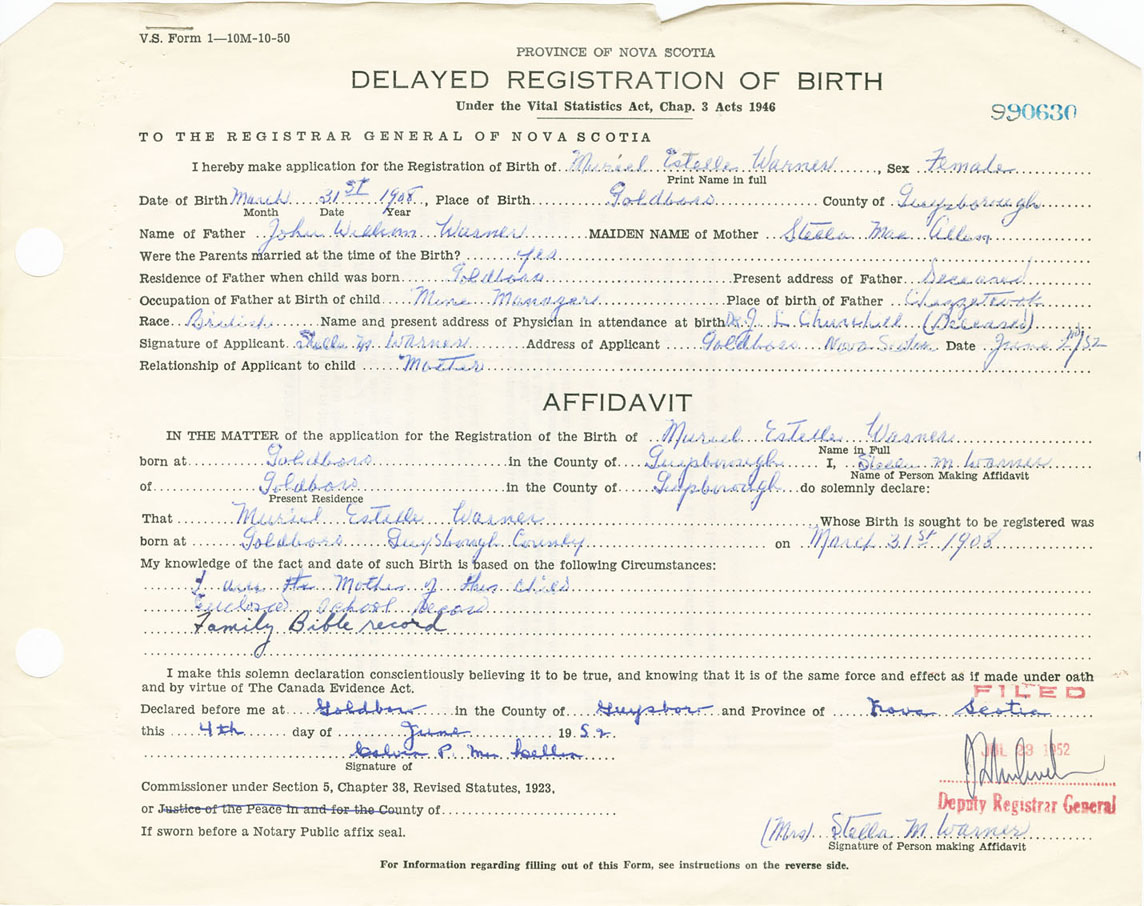 V.S. Form 1—10M-10-50
PROVINCE OF NOVA SCOTIA
DELAYED REGISTRATION OF BIRTH
Under the Vital Statistics Act, Chap. 3 Acts 1946
990630
TO THE REGISTRAR GENERAL OF NOVA SCOTIA
I hereby make application for the Registration of Birth of Muriel Estelle Warner, Sex Female
Print Name in full
Date of Birth March 31st 1908, Place of Birth Goldboro County of Guysborough
Month Date Year
Name of Father John William Warner MAIDEN NAME of Mother Stella Mae
Were the Parents married at the time of the Birth? yes
Residence of Father when child was born Goldboro Present address of Father Deceased
Occupation of Father at Birth of child Mine Manager Place of birth of Father Chezzetcook
Race British Name and present address of Physician in attendance at birth Dr. J. L. Churchill (Deceased)
Signature of Applicant Stella M Warner Address of Applicant Goldboro Nova Scotia Date June 2nd/52
Relationship of Applicant to child Mother
AFFIDAVIT
IN THE MATTER of the application for the Registration of the Birth of Muriel Estelle Warner
Name in Full
born at Goldboro in the County of Guysborough I, Stella M Warner
Name of Person Making Affidavit
of Goldboro in the County of Guysborough do solemnly declare:
Present Residence
That Muriel Estelle Warner Whose Birth is sought to be registered was
born at Goldboro Guysborough County on March 31st 1908
My knowledge of the fact and date of such Birth is based on the following Circumstances:
I am the Mother of this child
Enclosed School Record
Family Bible record
I make this solemn declaration conscientiously believing it to be true, and knowing that it is of the same force and effect as if made under oath
and by virtue of The Canada Evidence Act.
FILED
Declared before me at Goldboro in the County of Guysboro and Province of Nova Scotia
this 4th day of June 1952
JUL 23 1952
Calvin P.
Signature of
Commissioner under Section 5, Chapter 38, Revised Statutes, 1923,
Deputy Registrar General
or Justice of the Peace in and for the County of
If sworn before a Notary Public affix seal.
(Mrs) Stella M Warner
Signature of Person making Affidavit
For Information regarding filling out of this Form, see instructions on the reverse side.